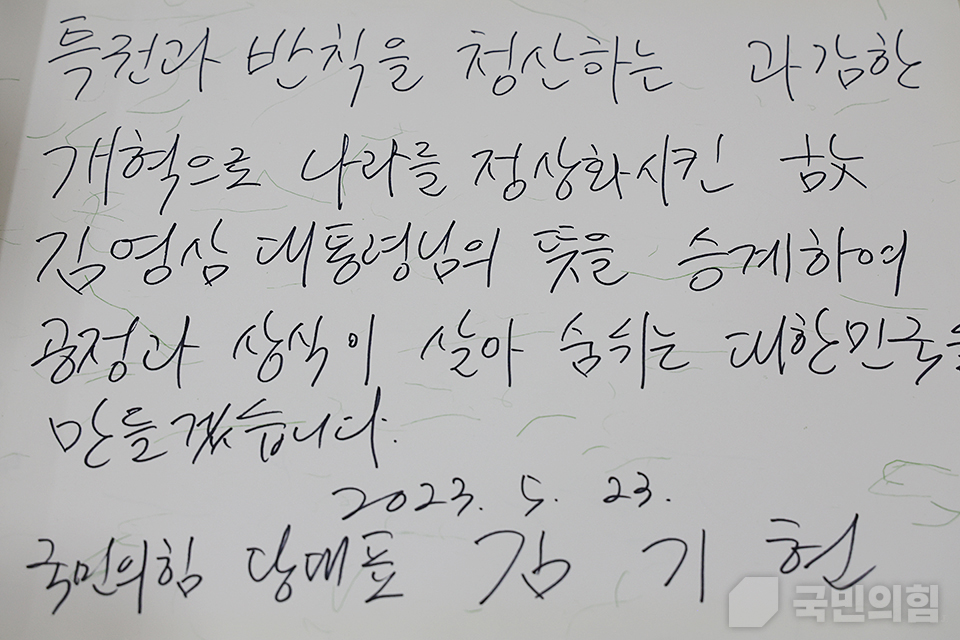 특권과 반칙을 청산하는 과감한
개혁으로 나라를 정상화시킨 故
김영삼 대통령님의 뜻을 승계하여
공정과 상식이 살아 숨쉬는 대한민국을
만들겠습니다.
2023. 5. 23.
국민의힘 당대표 김 기 현
국민의힘